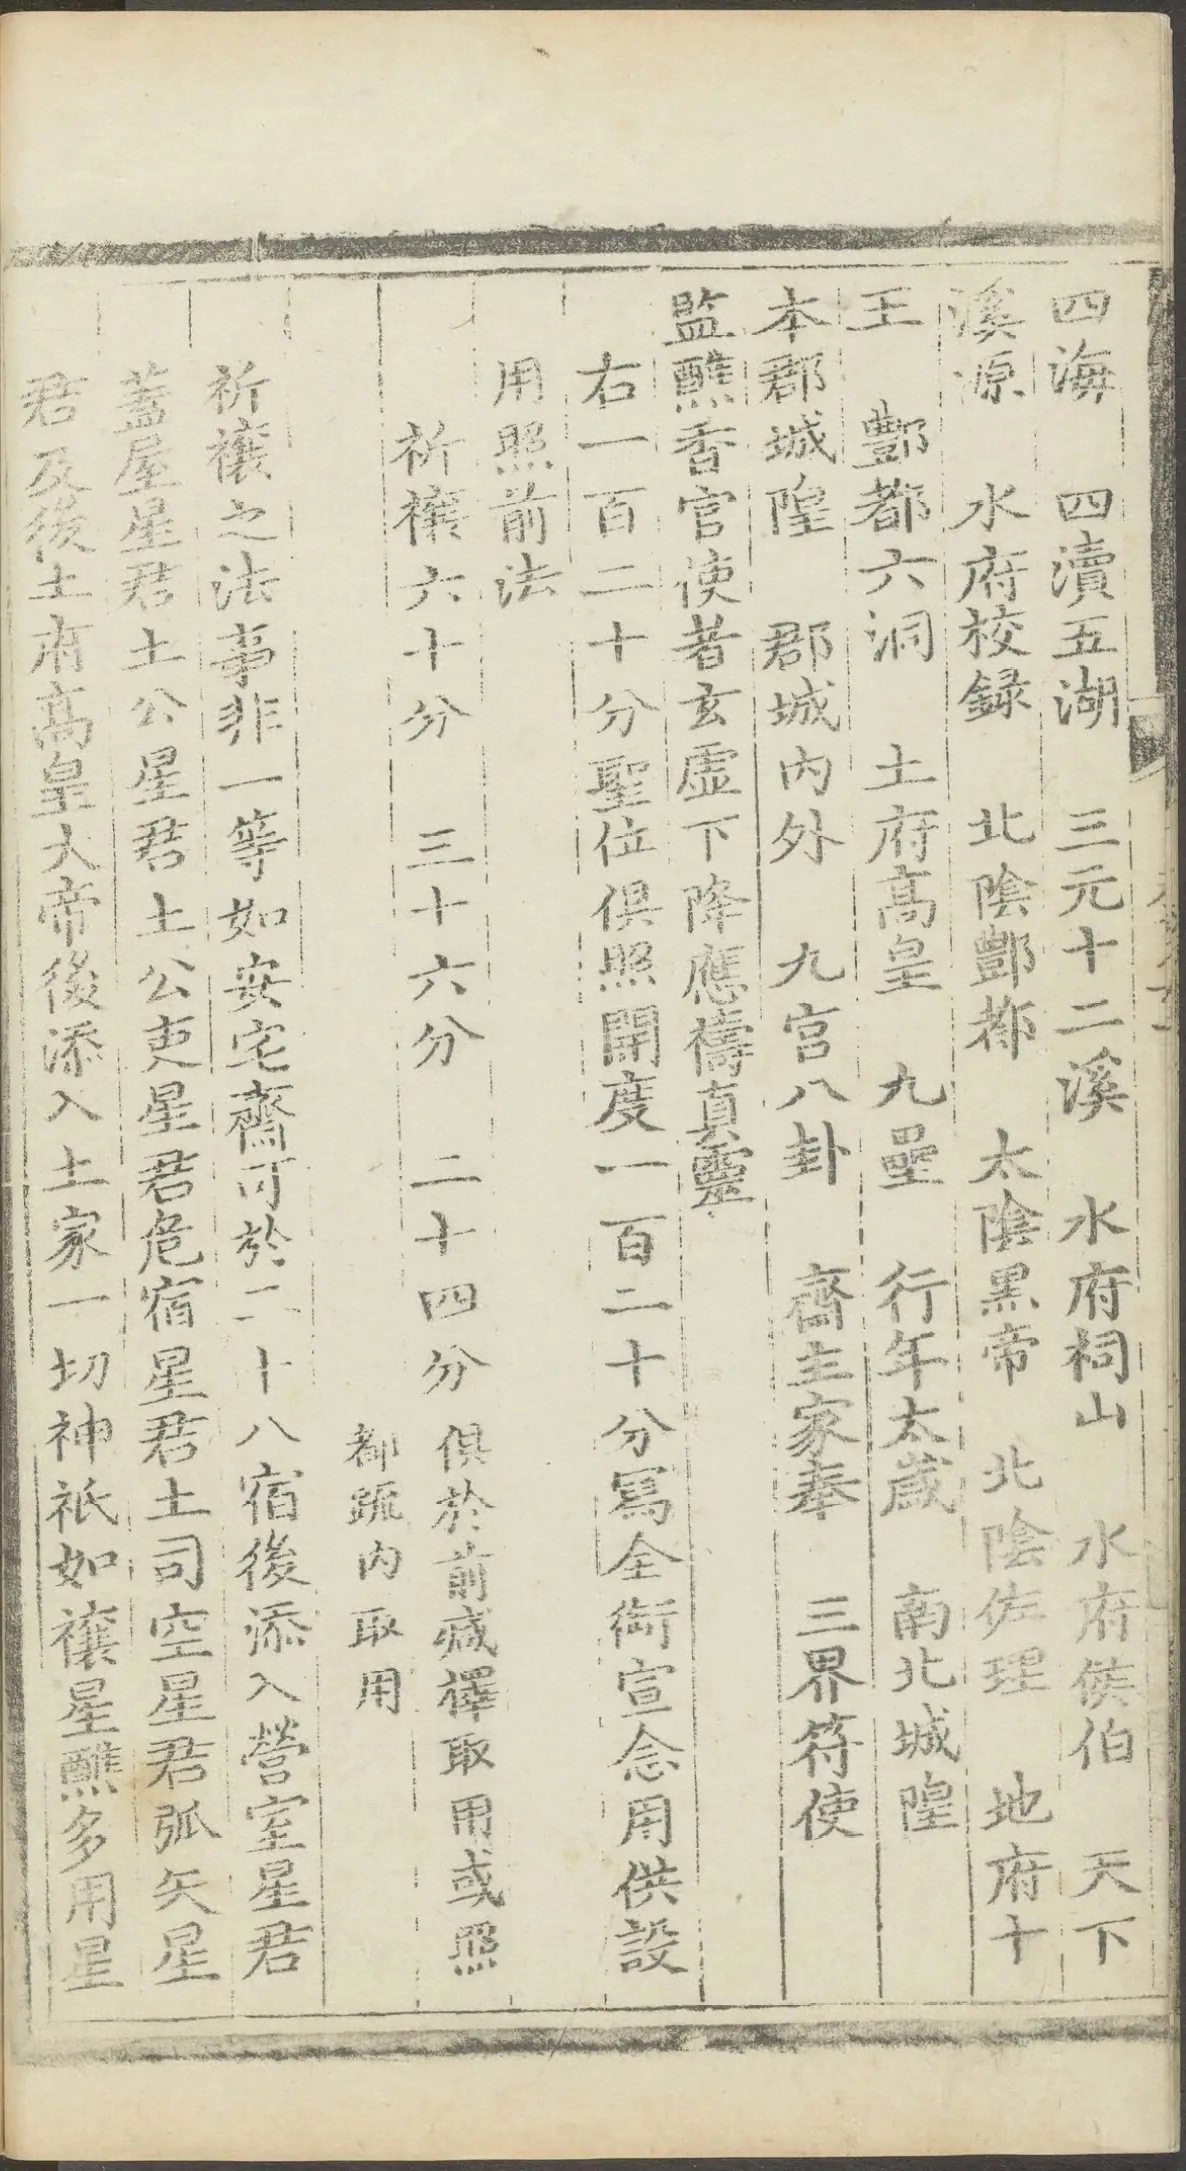 四海　四瀆五湖　三元十二溪　水府祠山　水府侯伯　天下
溪源　水府校録　北陰酆都　太陰黑帝　北陰佐理　地府十
王　酆都六洞　土府高皇　九壘　行年太歲　南北城隍
本郡城隍　郡城內外　九宮八卦　齋主家奉　三界符使
監醮香官使者玄虛下降應禱真靈
右一百二十分聖位俱照開度一百二十分寫全銜宣念用供設
用照前法
祈禳六十分　三十六分　二十四分
俱於前減擇取用或照
都疏內取用
祈禳之法事非一等如安宅齋可於二十八宿後添入營室星君
蓋屋星君土公星君土公吏星君危宿星君土司空星君弧矢星
君及後土府高皇大帝後添入土家一切神祇如禳星醮多用星